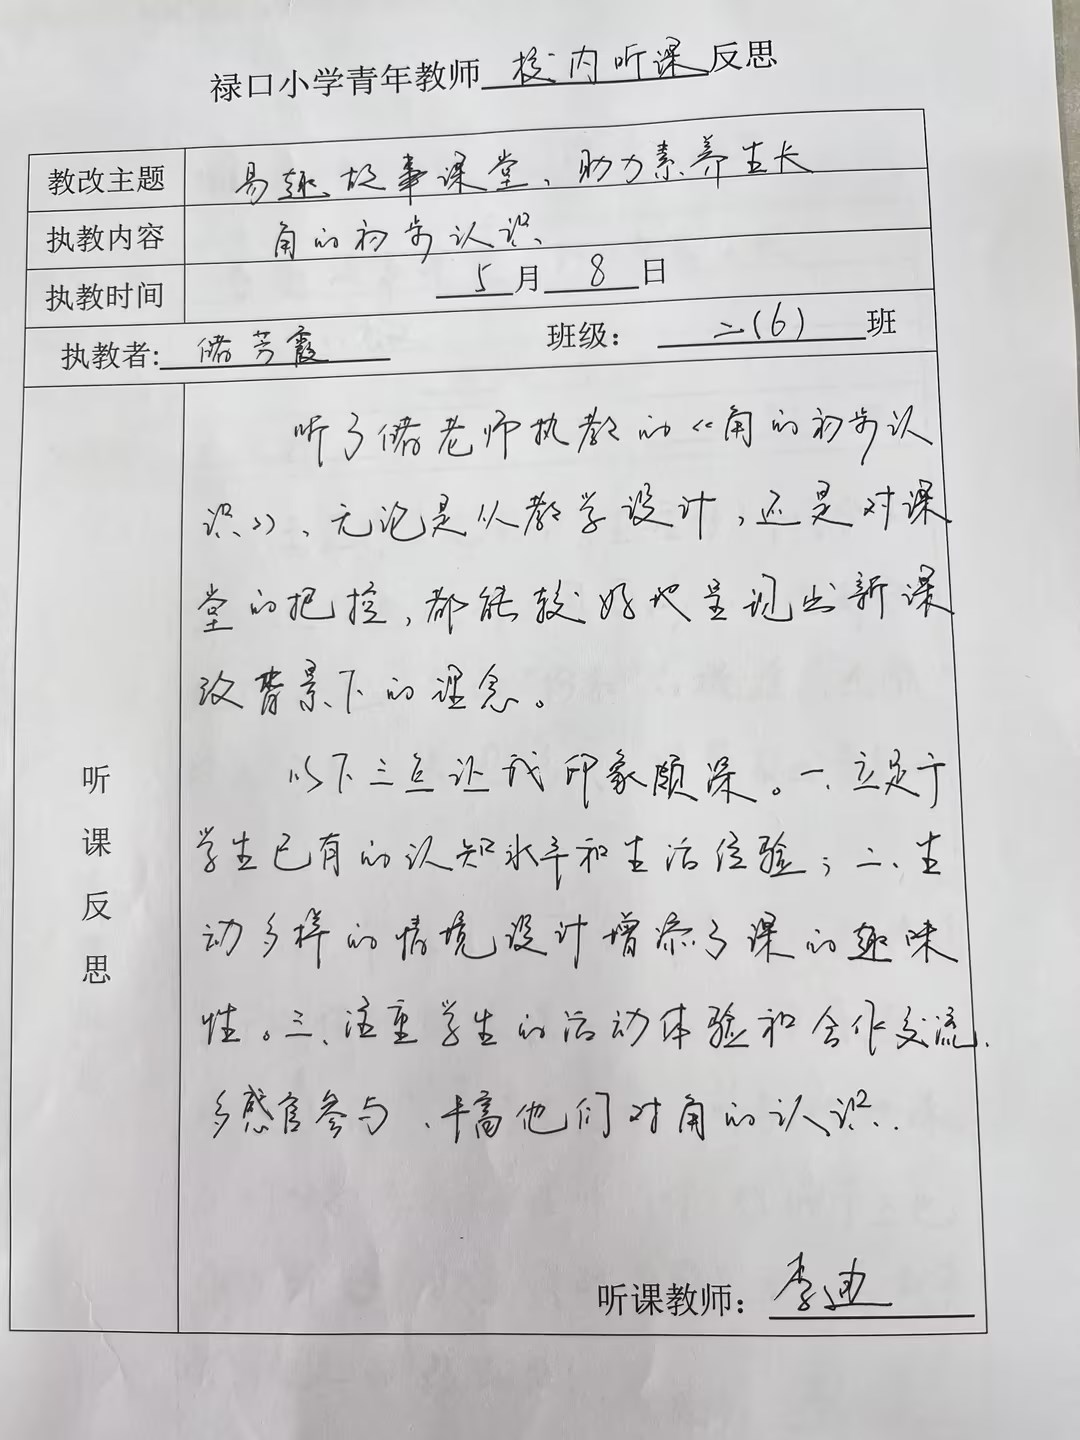 禄口小学青年教师校内听课反思
教改主题 易趣故事课堂、助力素养生长
执教内容 角的初步认识
执教时间 5月8日
执教者: 储芳霞 班级: 二(6)班
听课反思
听了储老师执教的《角的初步认
识》、无论是从教学设计,还是对课
堂的把控,都能较好地呈现出新课
改背景下的理念。
以下三点让我印象颇深。一、立足于
学生已有的认知水平和生活经验;二、生
动多样的情境设计增添了课的趣味
性。三、注重学生的活动体验和合作交流.
多感官参与、丰富他们对角的认识.
听课教师: 李迪